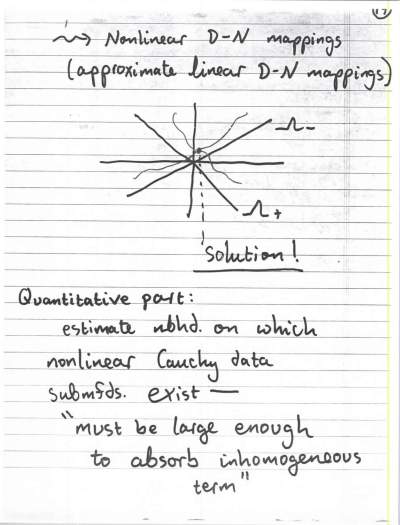 ⇝ Nonlinear D-N mappings
(approximate linear D-N mappings)
Λ-
Λ+
Solution!
Quantitative part:
estimate nbhd. on which
nonlinear Cauchy data
submfds. exist —
"must be large enough
to absorb inhomogeneous
term"